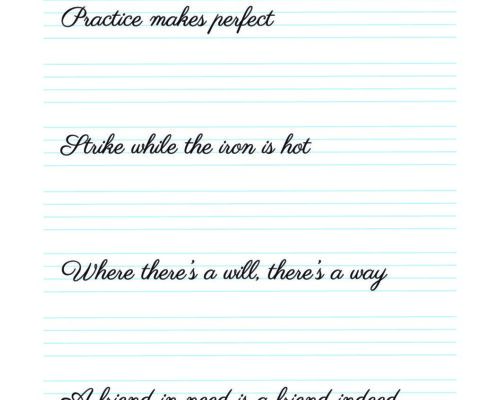 Practice makes perfect
Strike while the iron is hot
Where there's a will, there's a way
A friend in need is a friend indeed